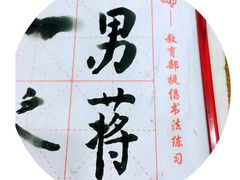 教育部提倡书法练习
男蒋